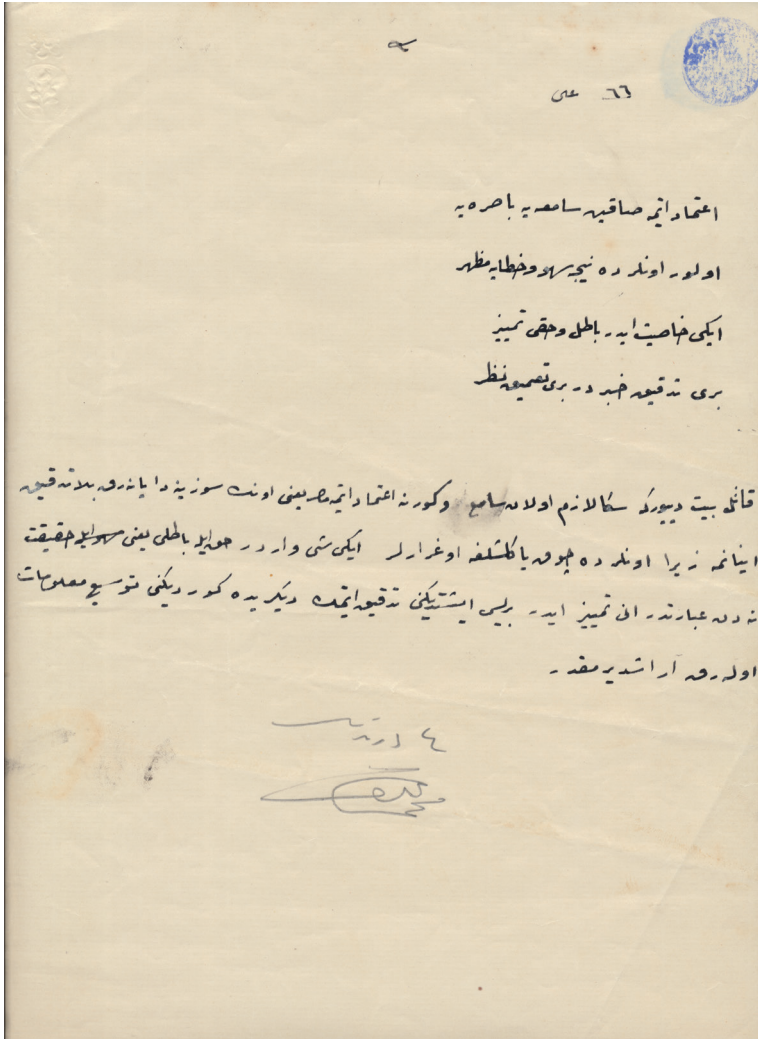 ٦٦ علی
اعتماد ایتمه صاقین سامعه یه باصره یه
اولور اونلر ده نیجه سهو وخطایه مظهر
ایکی خاصیت ایدر باطل وحقی تمییز
بری تدقیق خبر در بری تعمیق نظر
قائل بیت دییورکه سکا لازم اولان سامع وکورنه اعتماد ایتمه یعنی اونک سوزینه دایانه رق بلا تدقیق
اینانمه زیرا اونلر ده چوق یاکلشلغه اوغرارلر ایکی شی وار در حق ایله باطلی یعنی حقیقت
نه دن عبارتدر انی تمییز ایدر بریسی ایشتدیکنی تدقیق ایتمک دیکری ده کوردیکنی توسیع معلومات
اوله رق آراشدیرمقدر
٤ درت